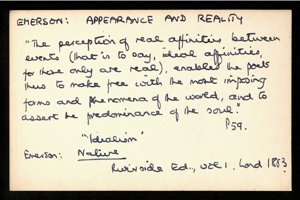 EMERSON: APPEARANCE AND REALITY
"The perception of real affinities between
events (that is to say, ideal affinities,
for those only are real), enables the poet
thus to make free with the most imposing
forms and phenomena of the world, and to
assert the predominance of the soul."
p59.
"Idealism"
Emerson: Nature
Riverside Ed., vol 1. Lond 1883